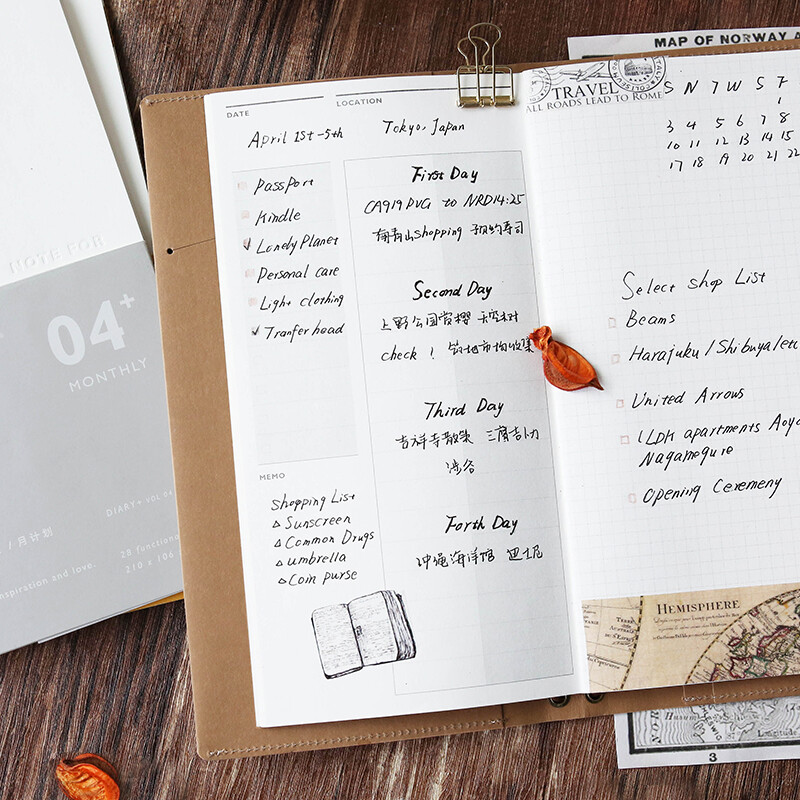 NOTE FOR
04+
MONTHLY
DIARY+ VOL.04
/ 月计划
28 function
210 x 106
inspiration and love.
DATE
April 1st-5th
LOCATION
Tokyo, Japan
PassPort
Kindle
Lonely Planet
Personal care
Light clothing
Tranfer head
MEMO
Shopping List
Sunscreen
Common Drugs
umbrella
Coin purse
First Day
CA919 PVG to NRD14:25
南青山shopping 预约寿司
Second Day
上野公园赏樱 天空树
check! 筑地市场收集
Third Day
吉祥寺散策 三鹰吉卜
涉谷
Forth Day
冲绳海洋馆 迪士尼
MAP OF NORWAY A
TRAVEL
ALL ROADS LEAD TO ROME
S N T W S F
1
3 4 5 6 7 8
10 11 12 13 14 15
17 18 19 20 21 22
Select shop List
Beams
Harajuku/Shibuya/etc
United Arrows
1LDK apartments Aoyo
Nagamegure
Opening Ceremony
HEMISPHERE
TERRE
Husum
Longitude
3